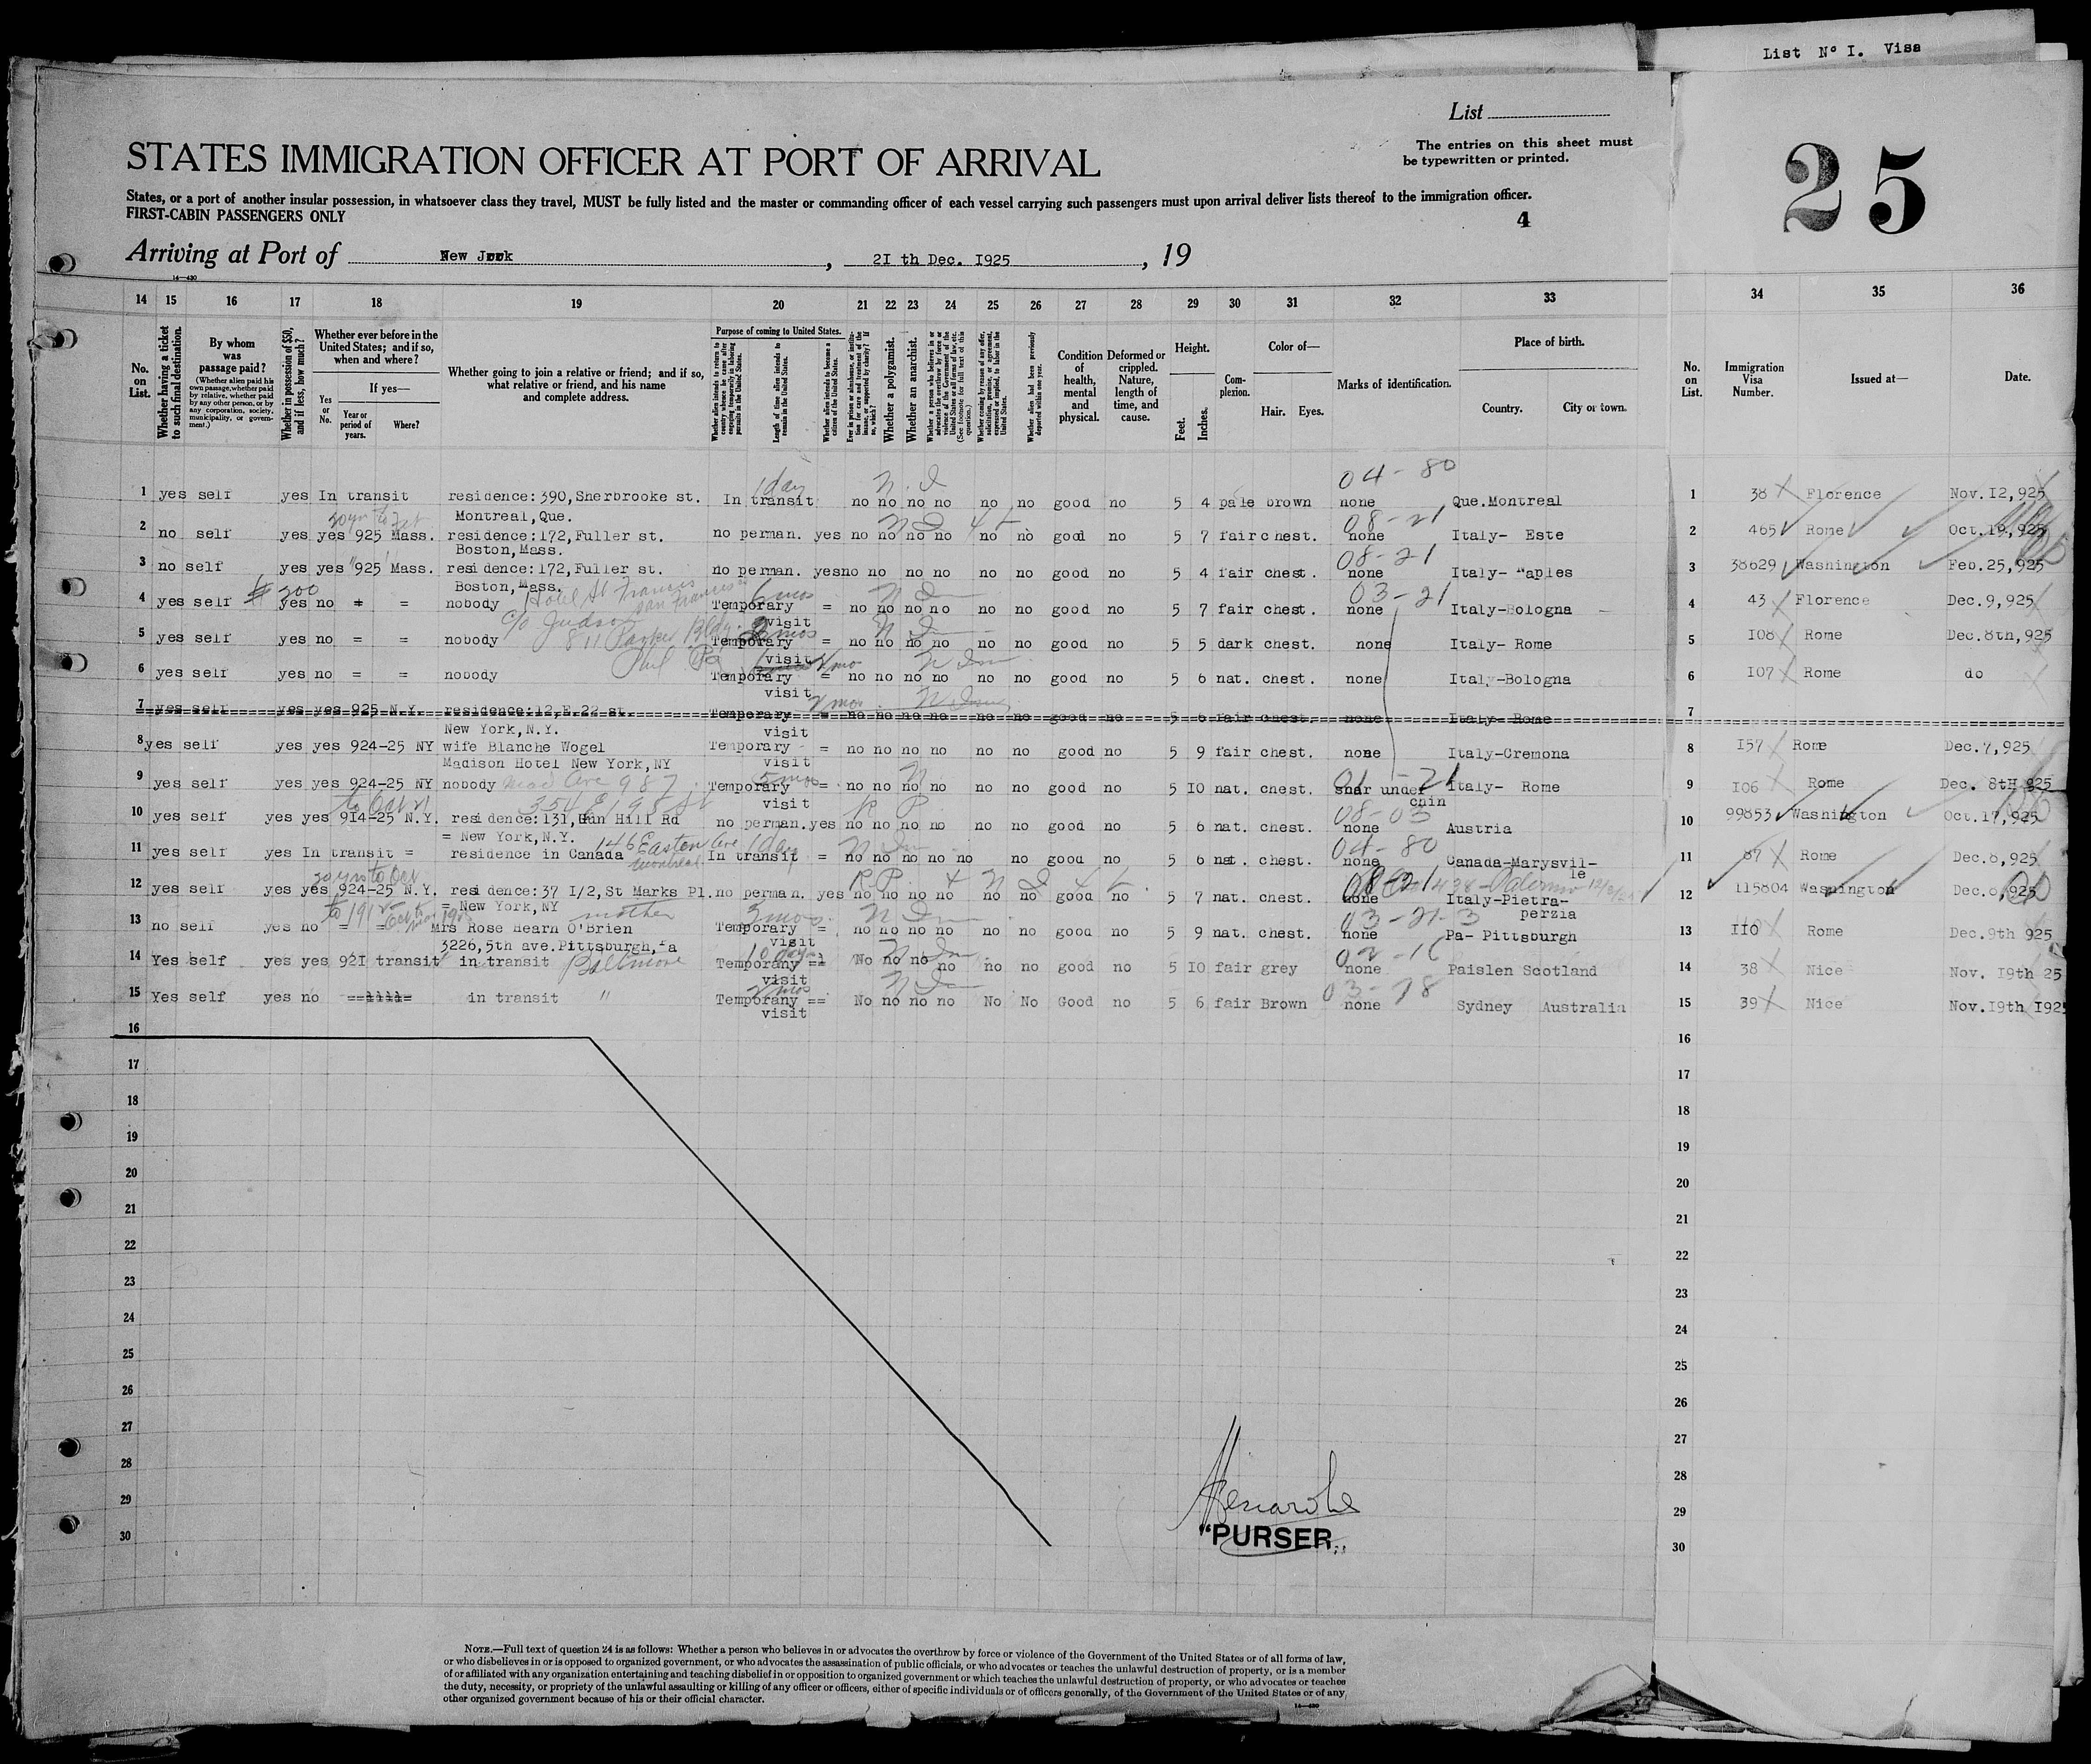 List No I. Visa
List
The entries on this sheet must
be typewritten or printed.
25
STATES IMMIGRATION OFFICER AT PORT OF ARRIVAL
States, or a port of another insular possession, in whatsoever class they travel, MUST be fully listed and the master or commanding officer of each vessel carrying such passengers must upon arrival deliver lists thereof to the immigration officer.
FIRST-CABIN PASSENGERS ONLY
4
Arriving at Port of New Jork, 2I th Dec. I925, 19
14—430
14 15 16 17 18 19 20 21 22 23 24 25 26 27 28 29 30 31 32 33 34 35 36
No. on List.
Whether having a ticket to such final destination.
By whom was passage paid?
(Whether alien paid his own passage, whether paid by relative, whether paid by any other person, or by any corporation, society, municipality, or government.)
Whether in possession of $50, and if less, how much?
Whether ever before in the United States; and if so, when and where?
If yes—
Yes or No.
Year or period of years.
Where?
Whether going to join a relative or friend; and if so, what relative or friend, and his name and complete address.
Purpose of coming to United States.
Whether alien intends to return to country whence he came after engaging temporarily in laboring pursuits in the United States.
Length of time alien intends to remain in the United States.
Whether alien intends to become a citizen of the United States.
Ever in prison or almshouse, or institution for care and treatment of the insane, or supported by charity? If so, which?
Whether a polygamist.
Whether an anarchist.
Whether a person who believes in or advocates the overthrow by force or violence of the Government of the United States or all forms of law, etc. (See footnote for full text of this question.)
Whether coming by reason of any offer, solicitation, promise, or agreement, expressed or implied, to labor in the United States.
Whether alien had been previously deported within one year.
Condition of health, mental and physical.
Deformed or crippled. Nature, length of time, and cause.
Height.
Feet. Inches.
Complexion.
Color of—
Hair. Eyes.
Marks of identification.
Place of birth.
Country. City or town.
No. on List.
Immigration Visa Number.
Issued at—
Date.
1day N. I 04-80
1 yes self yes In transit residence:390,Sherbrooke st. In transit no no no no no no good no 5 4 pale brown none Que.Montreal 1 38 Florence Nov.I2,925
Montreal,Que. 08-21
2 no self yes yes 925 Mass. residence:172,Fuller st. no perman. yes no no no no no no good no 5 7 fair chest. none Italy- Este 2 465 Rome Oct.19,925
Boston,Mass. 08-21
3 no self yes yes 925 Mass. residence:172,Fuller st. no perman. yes no no no no no no good no 5 4 fair chest. none Italy- Naples 3 38629 Washington Feb.25,925
Boston,Mass. $200 Hotel St Francis San Francisco 6 mos 03-21
4 yes self yes no = = nobody Temporary = no no no no no no good no 5 7 fair chest. none Italy-Bologna 4 43 Florence Dec.9,925
visit
c/o Judson 811 Parker Bldg. Phil Pa
5 yes self yes no = = nobody Temporary = no no no no no no good no 5 5 dark chest. none Italy- Rome 5 I08 Rome Dec.8th,925
visit
6 yes self yes no = = nobody Temporary = no no no no no no good no 5 6 nat. chest. none Italy-Bologna 6 I07 Rome do
visit
7 yes self yes yes 925 N.Y. residence:12,E.22 st. Temporary = no no no no no no good no 5 6 fair chest. none Italy- Rome 7
New York,N.Y. visit
8 yes self yes yes 924-25 NY wife Blanche Wogel Temporary = no no no no no no good no 5 9 fair chest. none Italy-Cremona 8 I57 Rome Dec.7,925
Madison Hotel New York,NY visit
9 yes self yes yes 924-25 NY nobody Mad Ave 987 Temporary = no no no no no no good no 5 IO nat. chest. snar under chin Italy- Rome 9 I06 Rome Dec. 8tH 925
visit
354 E 195 St 08-03
10 yes self yes yes 9I4-25 N.Y. residence:131,Gun Hill Rd no perman. yes no no no no no no good no 5 6 nat. chest. none Austria 10 99853 Washington Oct.17,925
= New York,N.Y. 146 Easton Ave Montreal 1day 04-80
11 yes self yes In transit = residence in Canada In transit = no no no no no no good no 5 6 nat. chest. none Canada-Marysville 11 87 Rome Dec.8,925
12 yes self yes yes 924-25 N.Y. residence:37 I/2,St Marks Pl. no perman. yes no no no no no no good no 5 7 nat. chest. none Italy-Pietraperzia 12 115804 Washington Dec.8,925
= New York,NY mother 03-21-3
13 no self yes no = = Mrs Rose Hearn O'Brien Temporary = no no no no no no good no 5 9 nat. chest. none Pa- Pittsburgh 13 II0 Rome Dec.9th 925
3226,5th ave.Pittsburgh,Pa visit
14 Yes self yes yes 92I transit in transit Baltimore Temporany == No no no no no no good no 5 IO fair grey none Paislen Scotland 14 38 Nice Nov. I9th 25
visit
15 Yes self yes no in transit " Temporany == No no no no No No Good no 5 6 fair Brown none Sydney Australia 15 39 Nice Nov.I9th I925
visit
16 16
17 17
18 18
19 19
20 20
21 21
22 22
23 23
24 24
25 25
26 26
27 27
28 28
29 29
30 30
"PURSER"
NOTE.—Full text of question 24 is as follows: Whether a person who believes in or advocates the overthrow by force or violence of the Government of the United States or of all forms of law,
or who disbelieves in or is opposed to organized government, or who advocates the assassination of public officials, or who advocates or teaches the unlawful destruction of property, or is a member
of or affiliated with any organization entertaining and teaching disbelief in or opposition to organized government or which teaches the unlawful destruction of property, or who advocates or teaches
the duty, necessity, or propriety of the unlawful assaulting or killing of any officer or officers, either of specific individuals or of officers generally, of the Government of the United States or of any
other organized government because of his or their official character.
14—430